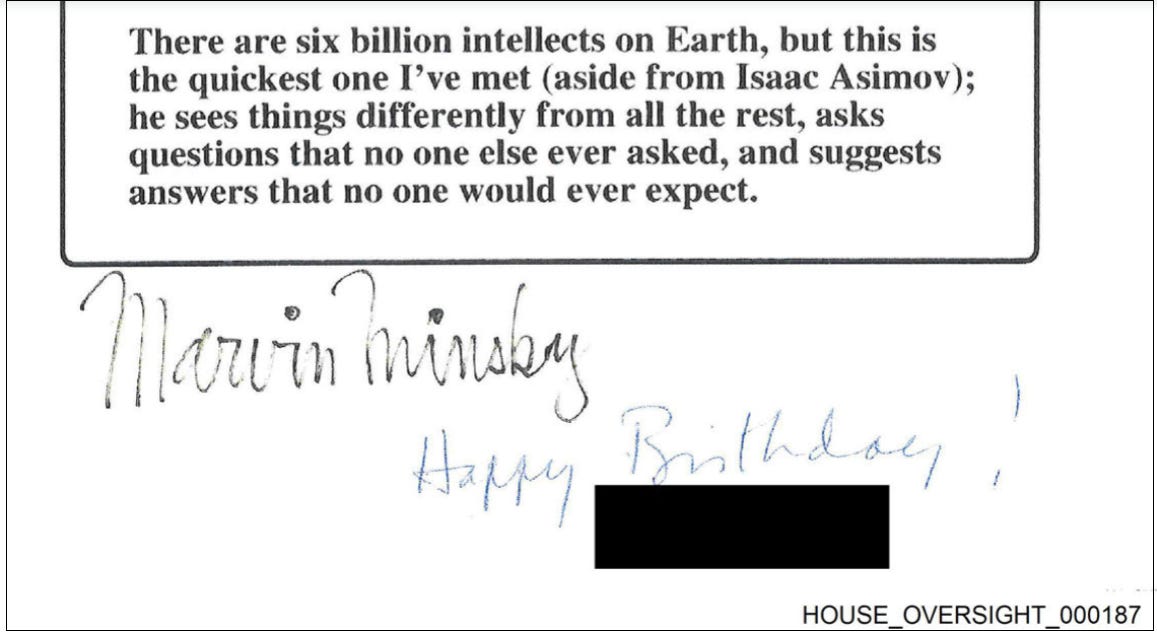 There are six billion intellects on Earth, but this is
the quickest one I've met (aside from Isaac Asimov);
he sees things differently from all the rest, asks
questions that no one else ever asked, and suggests
answers that no one would ever expect.
Marvin Minsky
Happy Birthday!
HOUSE_OVERSIGHT_000187